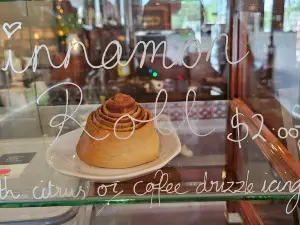 Cinnamon
Roll $2.00
with citrus or coffee drizzle icing